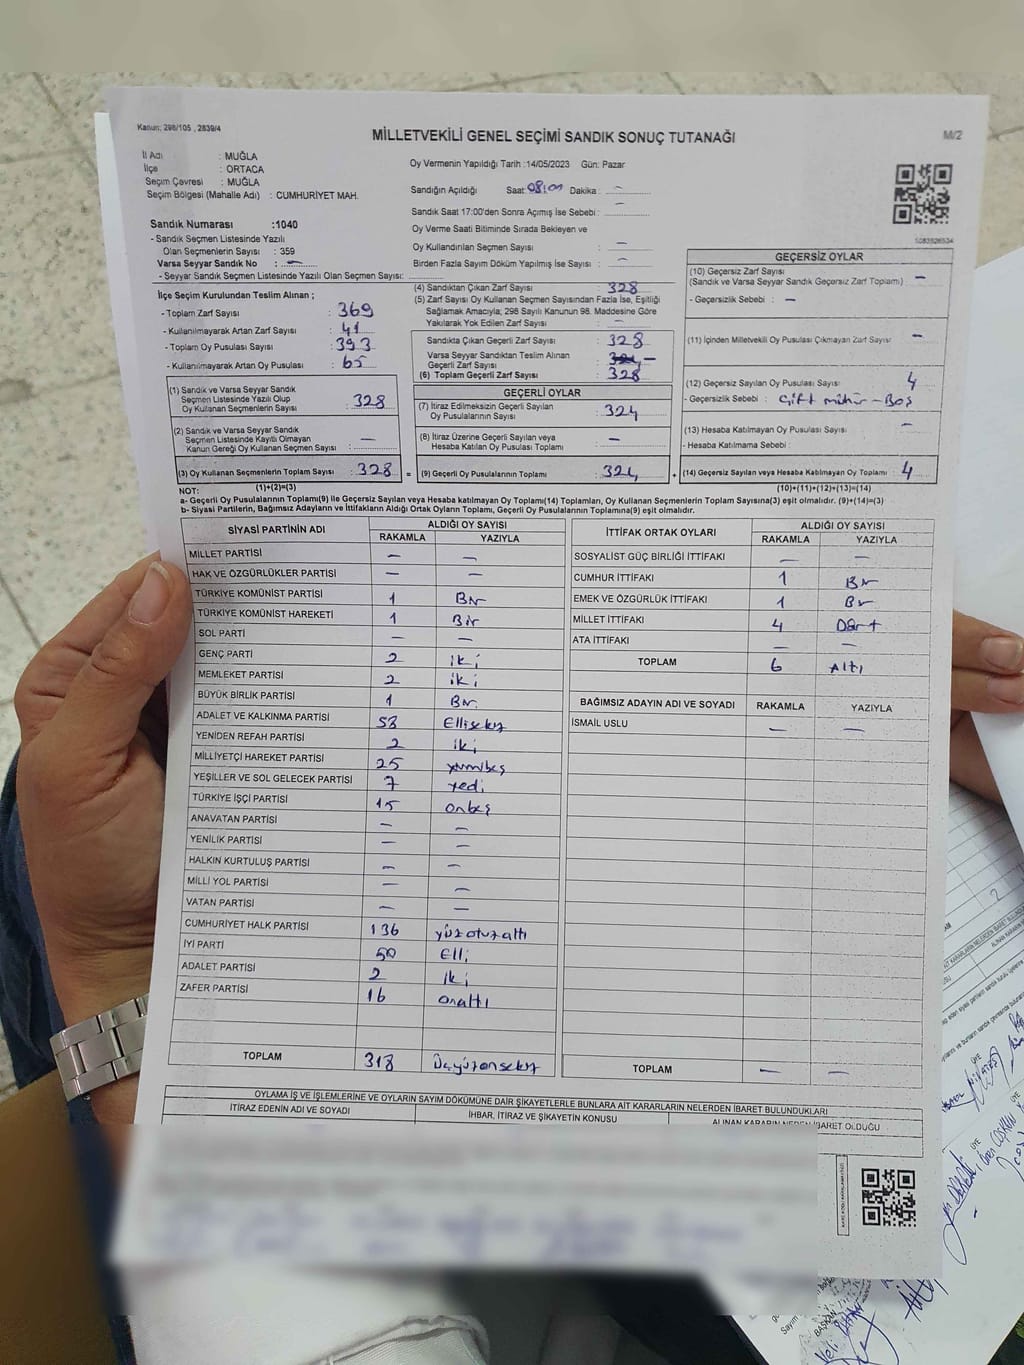 Kanun: 298/105 , 2839/4
MİLLETVEKİLİ GENEL SEÇİMİ SANDIK SONUÇ TUTANAĞI
M/2
İl Adı : MUĞLA
İlçe : ORTACA
Seçim Çevresi : MUĞLA
Seçim Bölgesi (Mahalle Adı) : CUMHURİYET MAH.
Oy Vermenin Yapıldığı Tarih :14/05/2023 Gün: Pazar
Sandığın Açıldığı Saat: Dakika : –
Sandık Saat 17:00'den Sonra Açımış İse Sebebi : –
Oy Verme Saati Bitiminde Sırada Bekleyen ve
Oy Kullandırılan Seçmen Sayısı : –
Birden Fazla Sayım Döküm Yapılmış İse Sayısı : –
Sandık Numarası :1040
- Sandık Seçmen Listesinde Yazılı
Olan Seçmenlerin Sayısı : 359
Varsa Seyyar Sandık No : –
- Seyyar Sandık Seçmen Listesinde Yazılı Olan Seçmen Sayısı:
İlçe Seçim Kurulundan Teslim Alınan ;
- Toplam Zarf Sayısı : 369
- Kullanılmayarak Artan Zarf Sayısı : 41
- Toplam Oy Pusulası Sayısı : 393
- Kullanılmayarak Artan Oy Pusulası : 65
(1) Sandık ve Varsa Seyyar Sandık
Seçmen Listesinde Yazılı Olup
Oy Kullanan Seçmenlerin Sayısı : 328
(2) Sandık ve Varsa Seyyar Sandık
Seçmen Listesinde Kayıtlı Olmayan
Kanun Gereği Oy Kullanan Seçmen Sayısı : –
(3) Oy Kullanan Seçmenlerin Toplam Sayısı : 328 =
(1)+(2)=(3)
(4) Sandıktan Çıkan Zarf Sayısı : 328
(5) Zarf Sayısı Oy Kullanan Seçmen Sayısından Fazla İse, Eşitliği
Sağlamak Amacıyla; 298 Sayılı Kanunun 98. Maddesine Göre
Yakılarak Yok Edilen Zarf Sayısı : –
Sandıkta Çıkan Geçerli Zarf Sayısı : 328
Varsa Seyyar Sandıktan Teslim Alınan
Geçerli Zarf Sayısı : –
(6) Toplam Geçerli Zarf Sayısı : 328
GEÇERLİ OYLAR
(7) İtiraz Edilmeksizin Geçerli Sayılan
Oy Pusulalarının Sayısı : 324
(8) İtiraz Üzerine Geçerli Sayılan veya
Hesaba Katılan Oy Pusulası Toplamı : –
(9) Geçerli Oy Pusulalarının Toplamı : 324 +
1083526534
GEÇERSİZ OYLAR
(10) Geçersiz Zarf Sayısı
(Sandık ve Varsa Seyyar Sandık Geçersiz Zarf Toplamı) : –
- Geçersizlik Sebebi : –
(11) İçinden Milletvekili Oy Pusulası Çıkmayan Zarf Sayısı : –
(12) Geçersiz Sayılan Oy Pusulası Sayısı : 4
- Geçersizlik Sebebi : Çift mühür – Boş
(13) Hesaba Katılmayan Oy Pusulası Sayısı : –
- Hesaba Katılmama Sebebi :
(14) Geçersiz Sayılan veya Hesaba Katılmayan Oy Toplamı : 4
(10)+(11)+(12)+(13)=(14)
NOT:
a- Geçerli Oy Pusulalarının Toplamı(9) ile Geçersiz Sayılan veya Hesaba katılmayan Oy Toplamı(14) Toplamları, Oy Kullanan Seçmenlerin Toplam Sayısına(3) eşit olmalıdır. (9)+(14)=(3)
b- Siyasi Partilerin, Bağımsız Adayların ve İttifakların Aldığı Ortak Oyların Toplamı, Geçerli Oy Pusulalarının Toplamına(9) eşit olmalıdır.
SİYASİ PARTİNİN ADI ALDIĞI OY SAYISI
RAKAMLA YAZIYLA
MİLLET PARTİSİ – –
HAK VE ÖZGÜRLÜKLER PARTİSİ – –
TÜRKİYE KOMÜNİST PARTİSİ 1 Bir
TÜRKİYE KOMÜNİST HAREKETİ 1 Bir
SOL PARTİ – –
GENÇ PARTİ 2 iki
MEMLEKET PARTİSİ 2 iki
BÜYÜK BİRLİK PARTİSİ 1 Bir
ADALET VE KALKINMA PARTİSİ 58 Ellisekiz
YENİDEN REFAH PARTİSİ 2 iki
MİLLİYETÇİ HAREKET PARTİSİ 25 yirmibeş
YEŞİLLER VE SOL GELECEK PARTİSİ 7 yedi
TÜRKİYE İŞÇİ PARTİSİ 15 onbeş
ANAVATAN PARTİSİ – –
YENİLİK PARTİSİ – –
HALKIN KURTULUŞ PARTİSİ – –
MİLLİ YOL PARTİSİ – –
VATAN PARTİSİ – –
CUMHURİYET HALK PARTİSİ 136 yüzotuzaltı
İYİ PARTİ 50 Elli
ADALET PARTİSİ 2 iki
ZAFER PARTİSİ 16 onaltı
TOPLAM 318 Üçyüzonsekiz
İTTİFAK ORTAK OYLARI ALDIĞI OY SAYISI
RAKAMLA YAZIYLA
SOSYALİST GÜÇ BİRLİĞİ İTTİFAKI – –
CUMHUR İTTİFAKI 1 Bir
EMEK VE ÖZGÜRLÜK İTTİFAKI 1 Bir
MİLLET İTTİFAKI 4 Dört
ATA İTTİFAKI – –
TOPLAM 6 Altı
BAĞIMSIZ ADAYIN ADI VE SOYADI RAKAMLA YAZIYLA
İSMAİL USLU – –
TOPLAM – –
OYLAMA İŞ VE İŞLEMLERİNE VE OYLARIN SAYIM DÖKÜMÜNE DAİR ŞİKAYETLERLE BUNLARA AİT KARARLARIN NELERDEN İBARET BULUNDUKLARI
İTİRAZ EDENİN ADI VE SOYADI İHBAR, İTİRAZ VE ŞİKAYETİN KONUSU ALINAN KARARIN NEDEN İBARET OLDUĞU